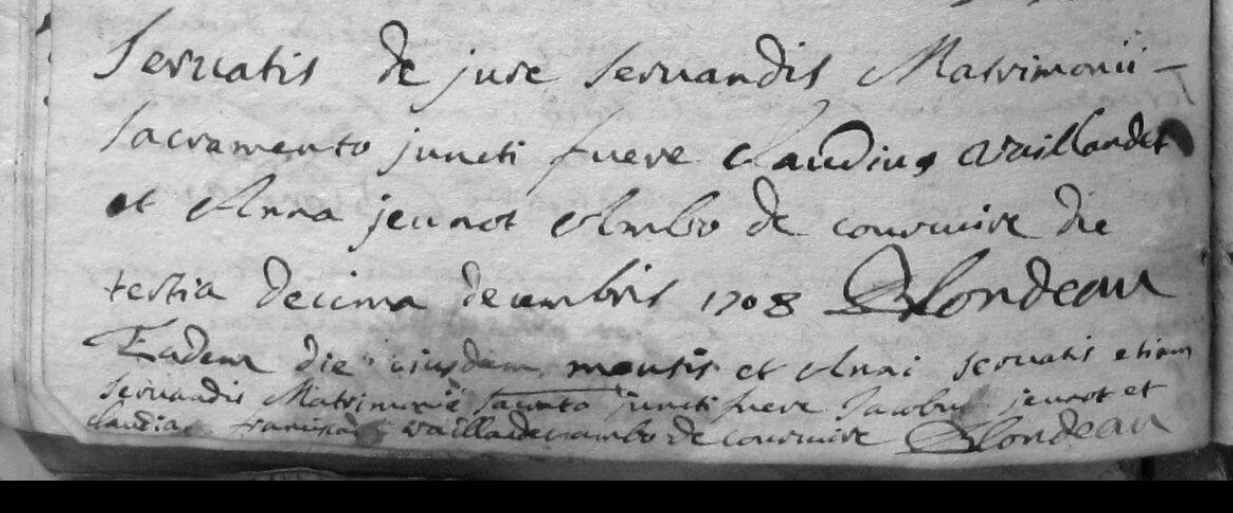 Servatis de jure servandis Matrimonii
sacramento juncti fuere Claudius Vaillandet
et Anna jeunot Ambo de couruire die
tertia decima decembris 1708 Blondeau
Eadem die eiusdem mensis et Anni servatis etiam
servandis Matrimonii juncti fuere Jacobus jeunot et
claudia francisca de couruire Blondeau